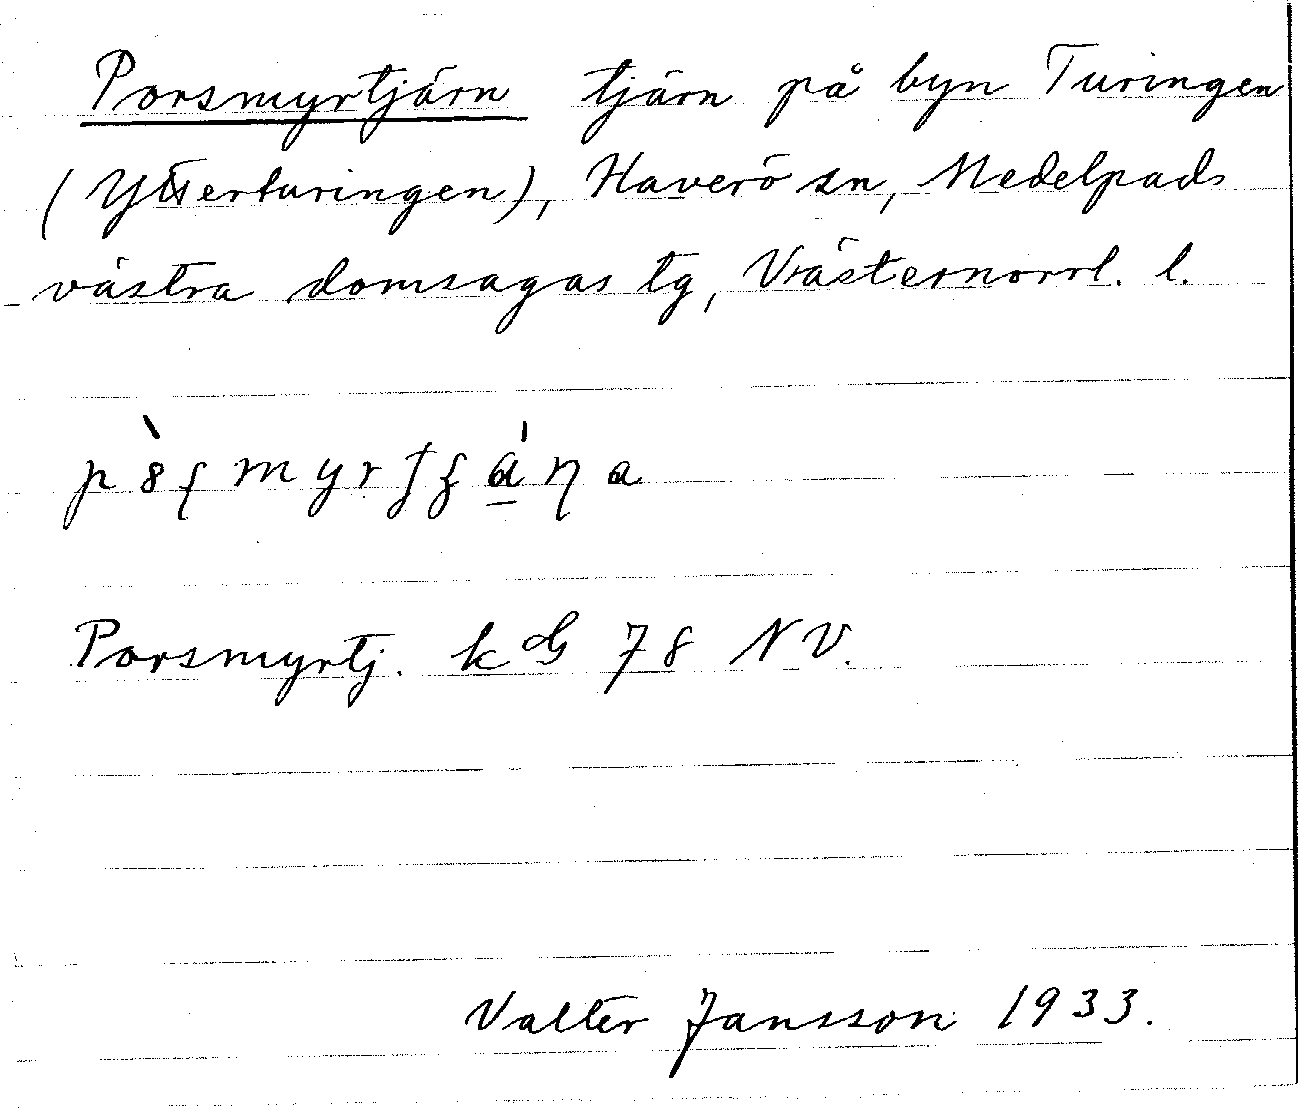 Porsmyrtjärn tjärn på byn Turingen
(Ytterturingen), Haverö sn, Medelpads
västra domsagas tg, Västernorrl. l.
Porsmyrtj. k G 78 NV.
Valter Jansson 1933.